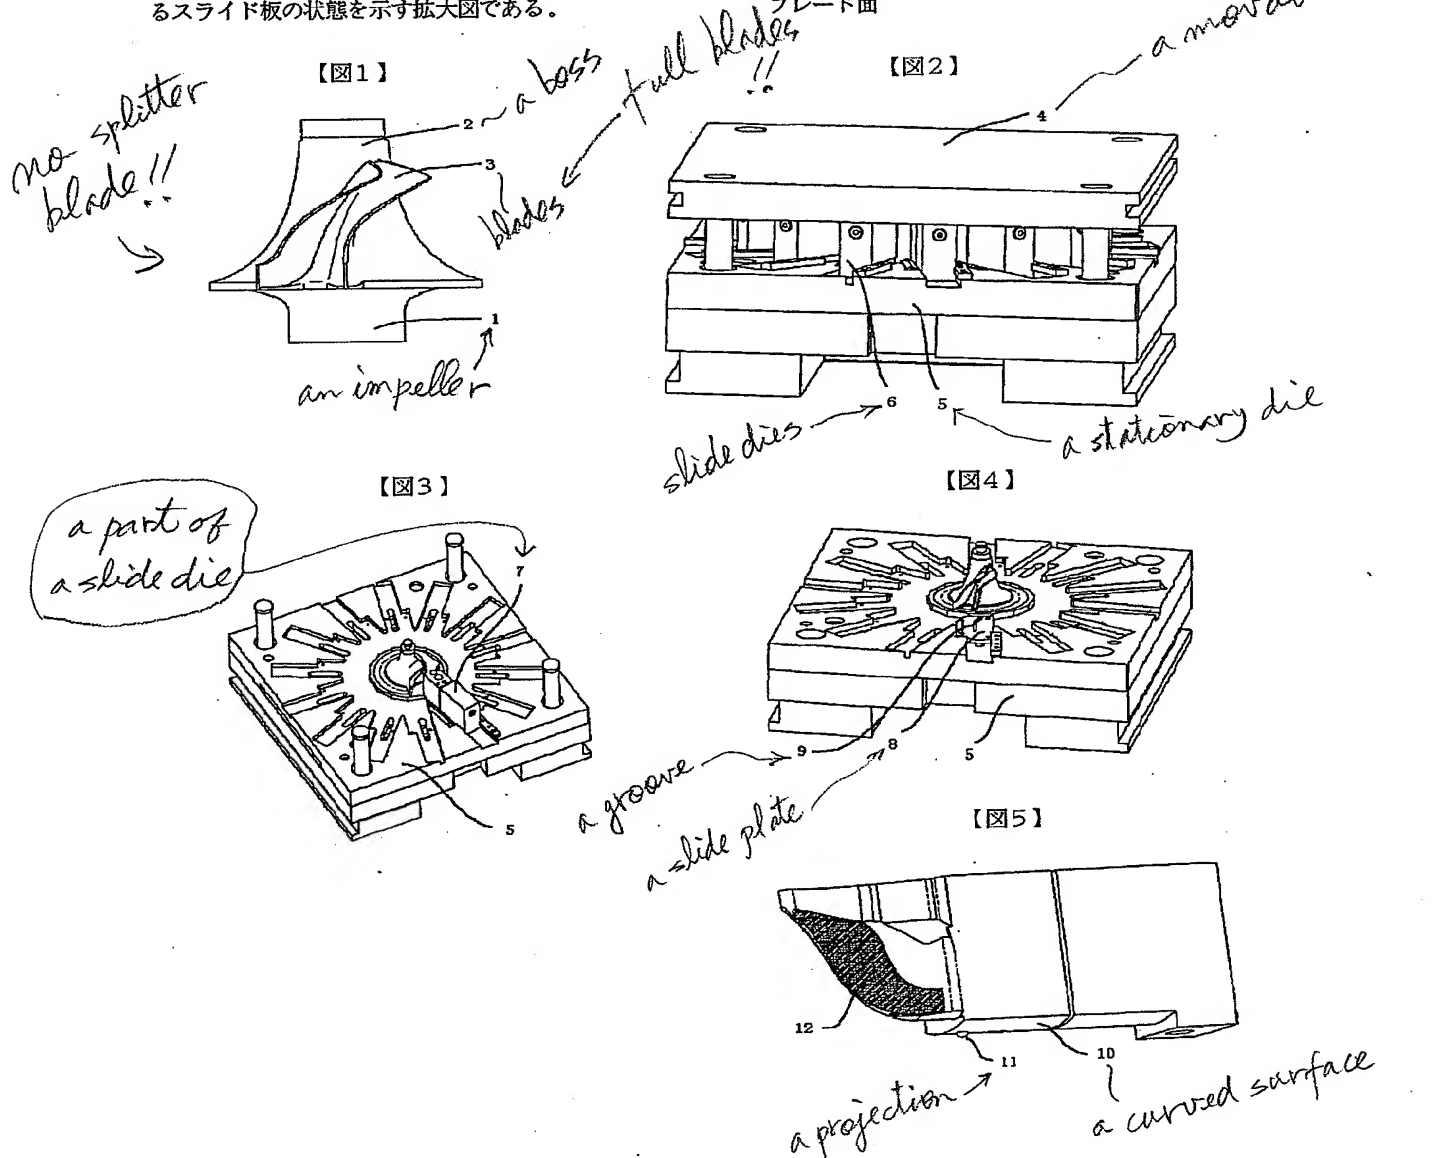 るスライド板の状態を示す拡大図である。
ブレード面
【図1】
【図2】
no splitter
blade!!
2
a boss
full blades
!!
3
blades
1
an impeller
4
a
6
5
slide dies
a stationary die
【図3】
【図4】
a part of
a slide die
7
5
9
8
5
a groove
a slide plate
【図5】
12
11
10
a projection
a curved surface